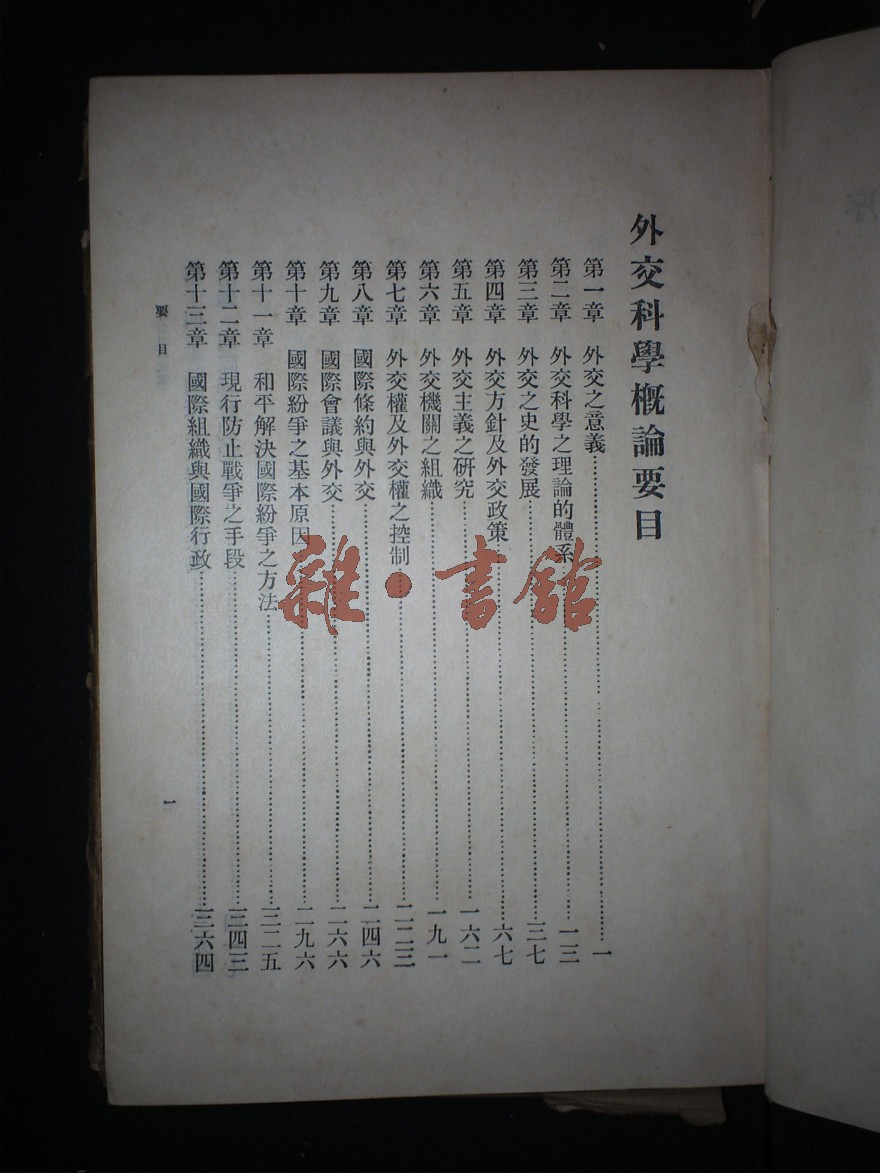 外交科學槪論要目
第一章　外交之意義…………一
第二章　外交科學之理論的體系…………一三
第三章　外交之史的發展…………三七
第四章　外交方針及外交政策…………六七
第五章　外交主義之研究…………一六二
第六章　外交機關之組織…………一九一
第七章　外交權及外交權之控制…………二二三
第八章　國際條約與外交…………二四六
第九章　國際會議與外交…………二六六
第十章　國際紛爭之基本原因…………二九六
第十一章　和平解決國際紛爭之方法…………三二五
第十二章　現行防止戰爭之手段…………三四三
第十三章　國際組織與國際行政…………三六四
要目
一
雜·書舘
序